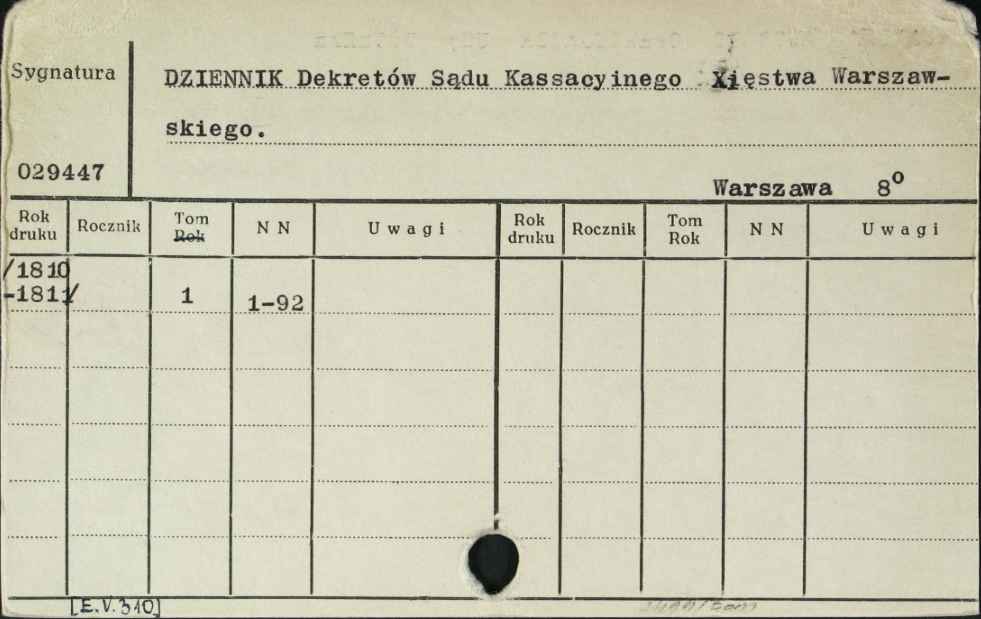 Sygnatura
DZIENNIK Dekretów Sądu Kassacyinego Xięstwa Warszaw-
skiego.
029447
Warszawa 8o
Rok druku Rocznik Tom Rok N N Uwagi Rok druku Rocznik Tom Rok N N Uwagi
/1810
-1811/ 1 1-92
[E.V.310]